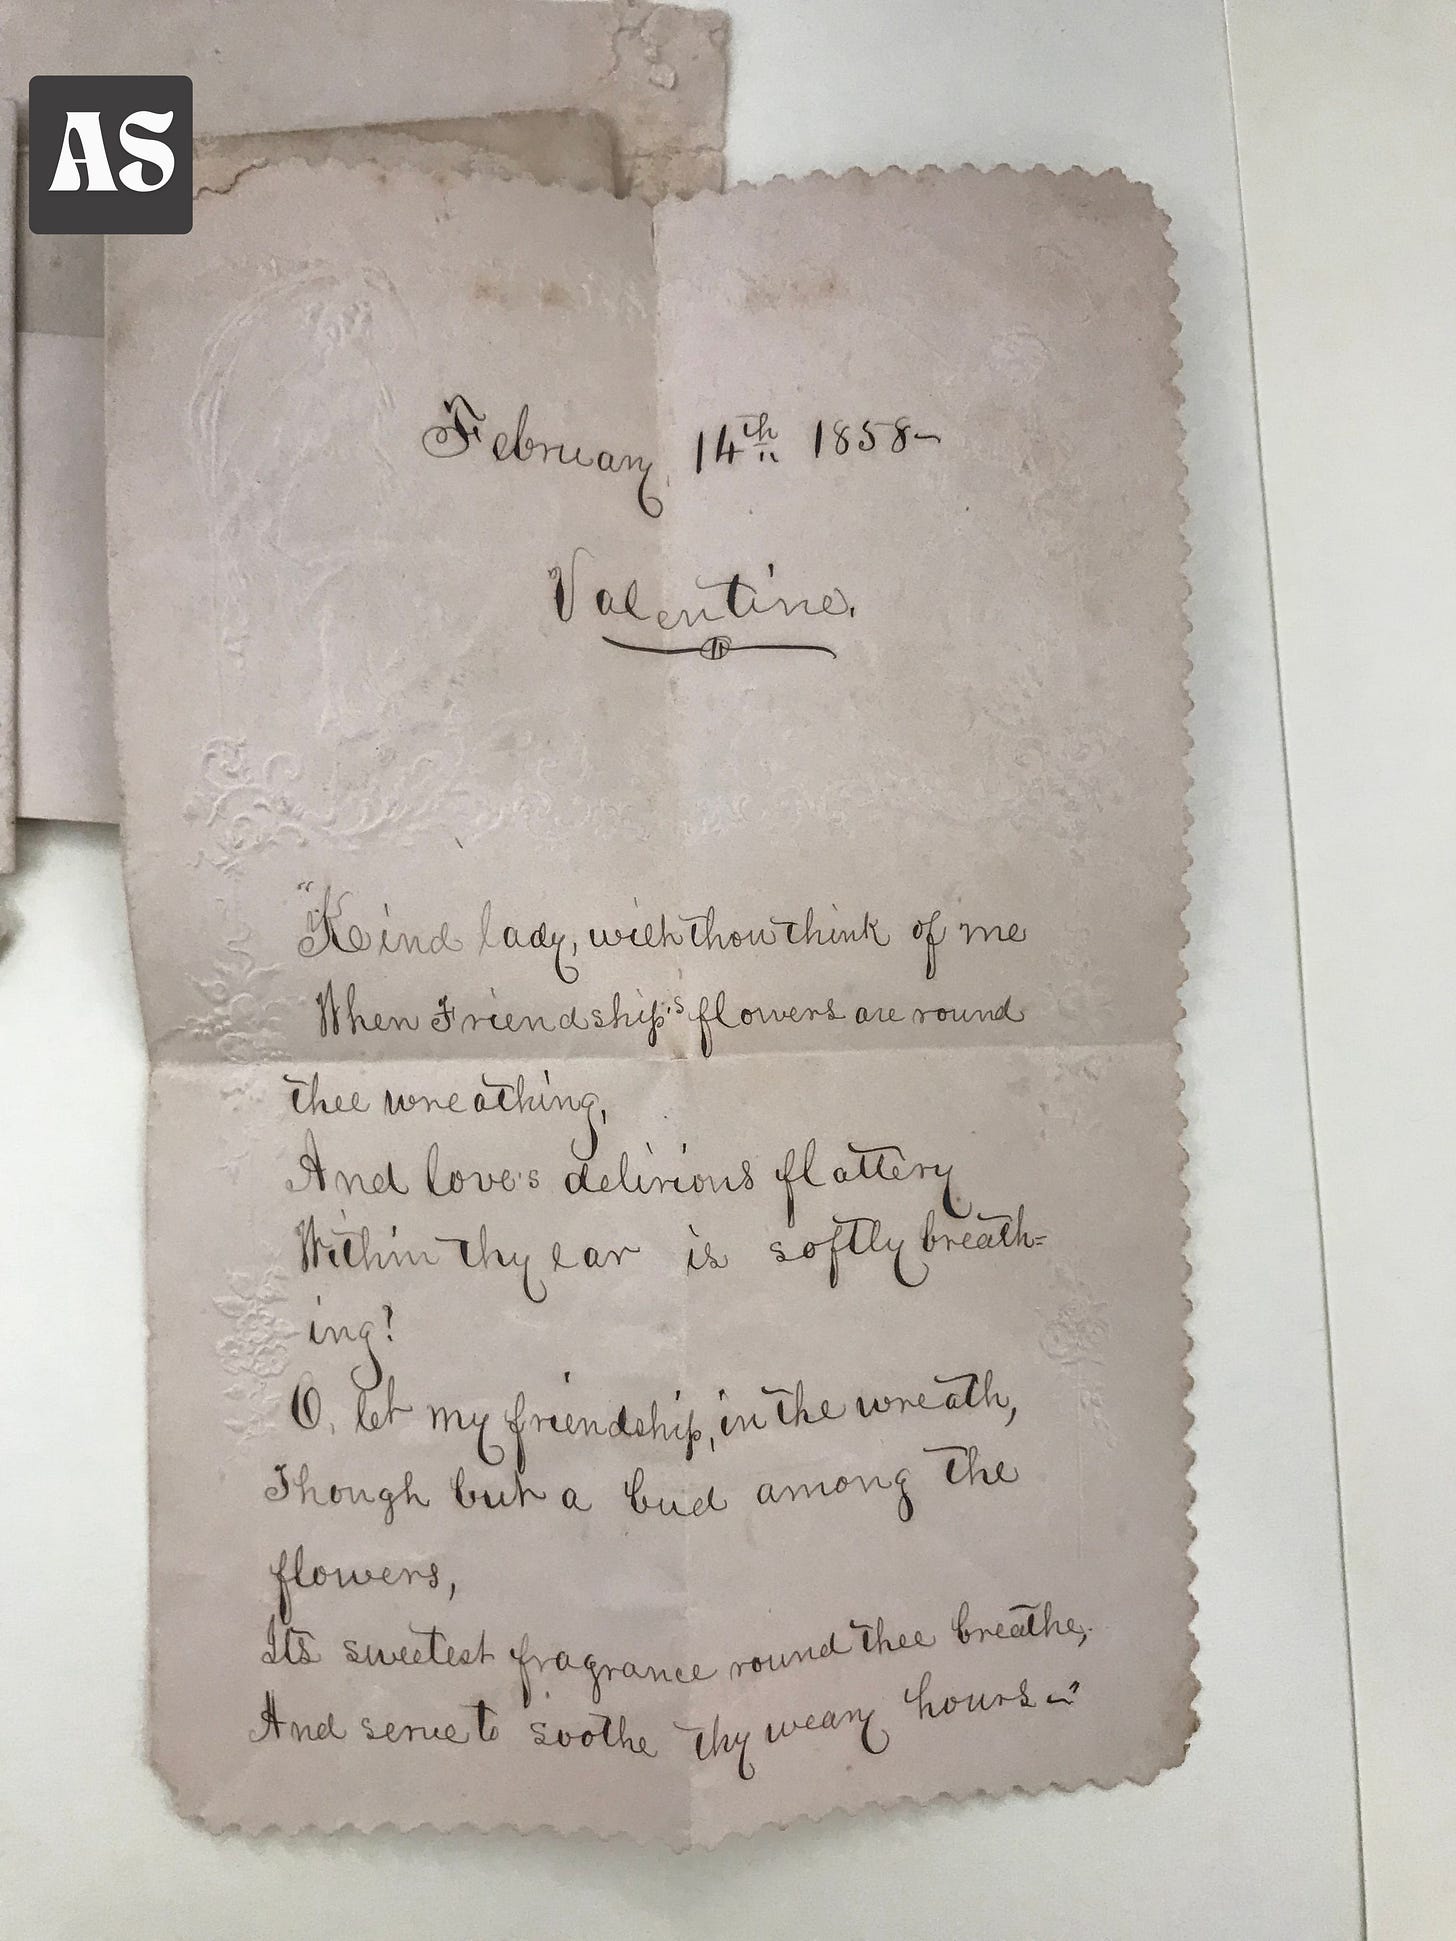 AS
February 14th 1858~
Valentine.
"Kind lady, wilt thou think of me
When Friendship's flowers are round
thee wreathing,
And love's delirious flattery
Within thy ear is softly breath=
ing?
O, let my friendship, in the wreath,
Though but a bud among the
flowers,
Its sweetest fragrance round thee breathe,
And serve to soothe thy weary hours~"